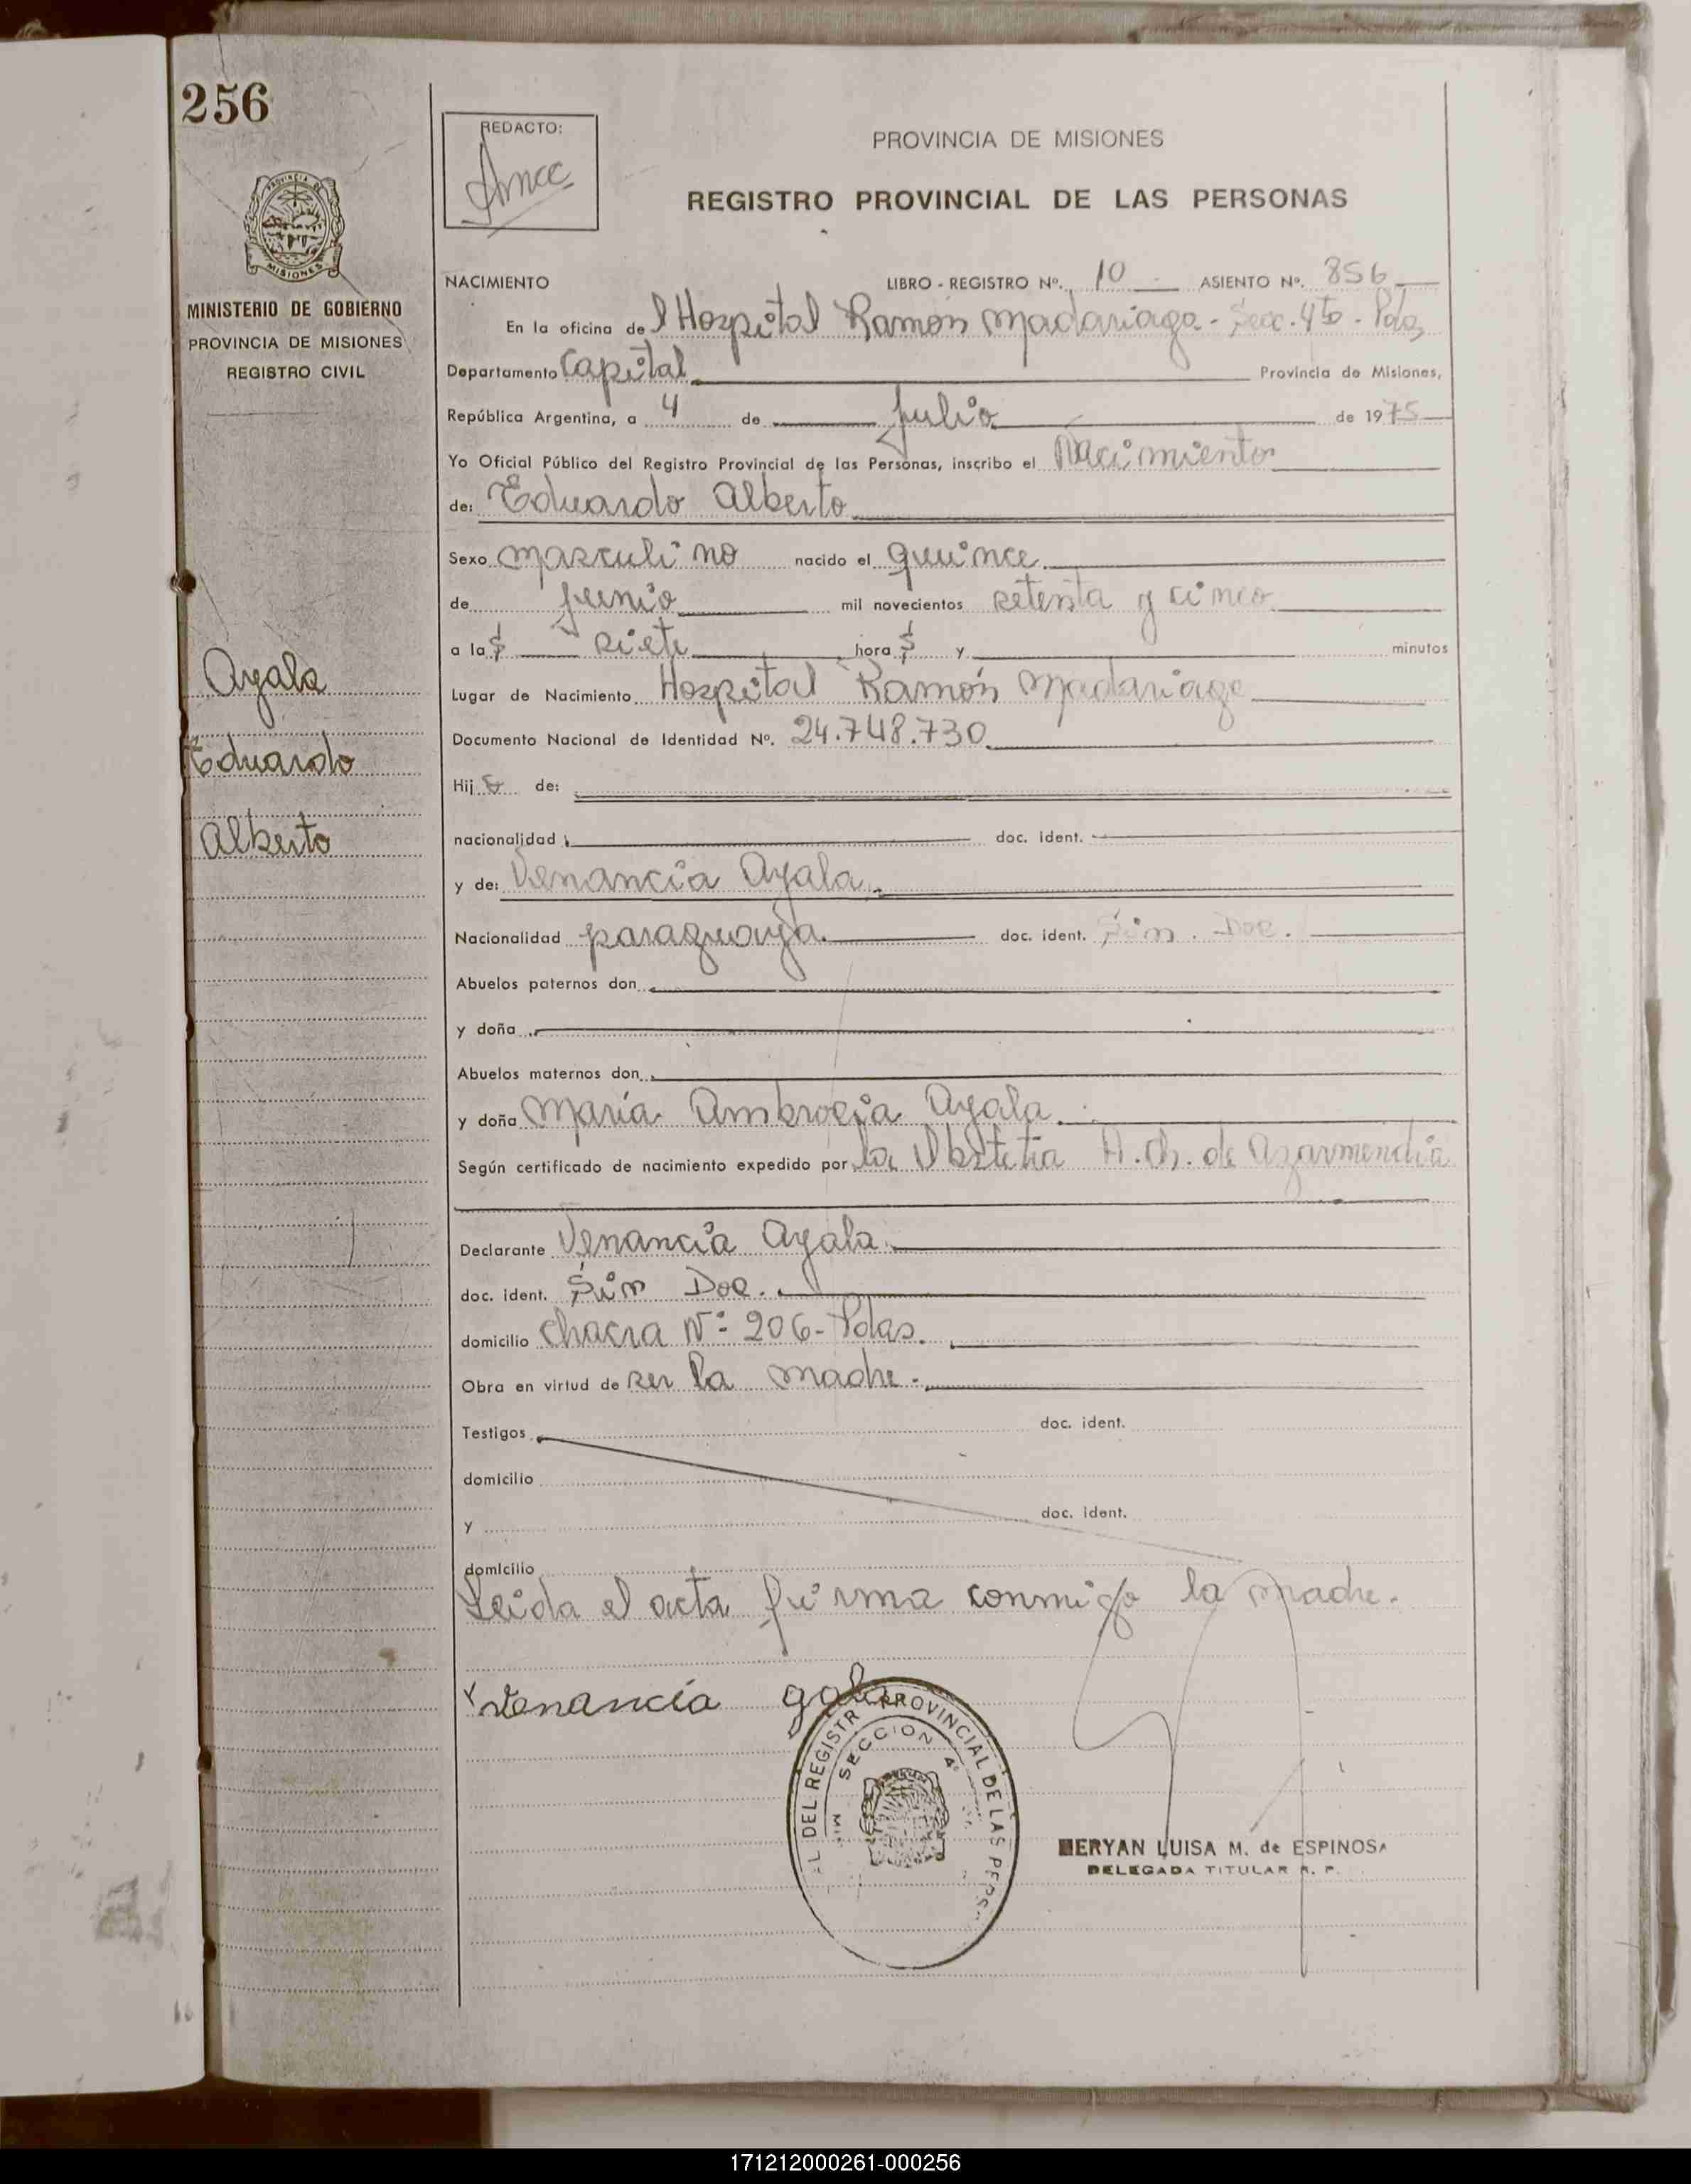 256
REDACTO:
PROVINCIA DE MISIONES
REGISTRO PROVINCIAL DE LAS PERSONAS
PROVINCIA DE
MISIONES
MINISTERIO DE GOBIERNO
PROVINCIA DE MISIONES
REGISTRO CIVIL
NACIMIENTO LIBRO - REGISTRO Nº. 10 ASIENTO Nº. 856
En la oficina de l Hospital Ramón Madariaga - Secc. 4ta - Pdas
Departamento Capital Provincia de Misiones,
República Argentina, a 4 de Julio de 1975
Yo Oficial Público del Registro Provincial de las Personas, inscribo el Nacimiento
de: Eduardo Alberto
Sexo masculino nacido el quince
de junio mil novecientos setenta y cinco
a las siete horas y minutos
Lugar de Nacimiento Hospital Ramón Madariaga
Documento Nacional de Identidad Nº. 24.748.730
Ayala
Eduardo
Alberto
Hijo de:
nacionalidad doc. ident.
y de: Venancia Ayala.
Nacionalidad paraguaya. doc. ident. Sin. Doc.
Abuelos paternos don
y doña
Abuelos maternos don
y doña María Ambrocia Ayala
Según certificado de nacimiento expedido por la Obstetra H. Ch. de Azarmendia
Declarante Venancia Ayala.
doc. ident. Sin Doc.
domicilio Chacra Nº 206- Pdas.
Obra en virtud de ser la madre.
Testigos doc. ident.
domicilio
y doc. ident.
domicilio
Leida el acta firma conmigo la madre.
Venancia
AL DEL REGISTR PROVINCIAL DE LAS PERS
SECCION 4ª
MERYAN LUISA M. de ESPINOSA
DELEGADA TITULAR R. P.
171212000261-000256